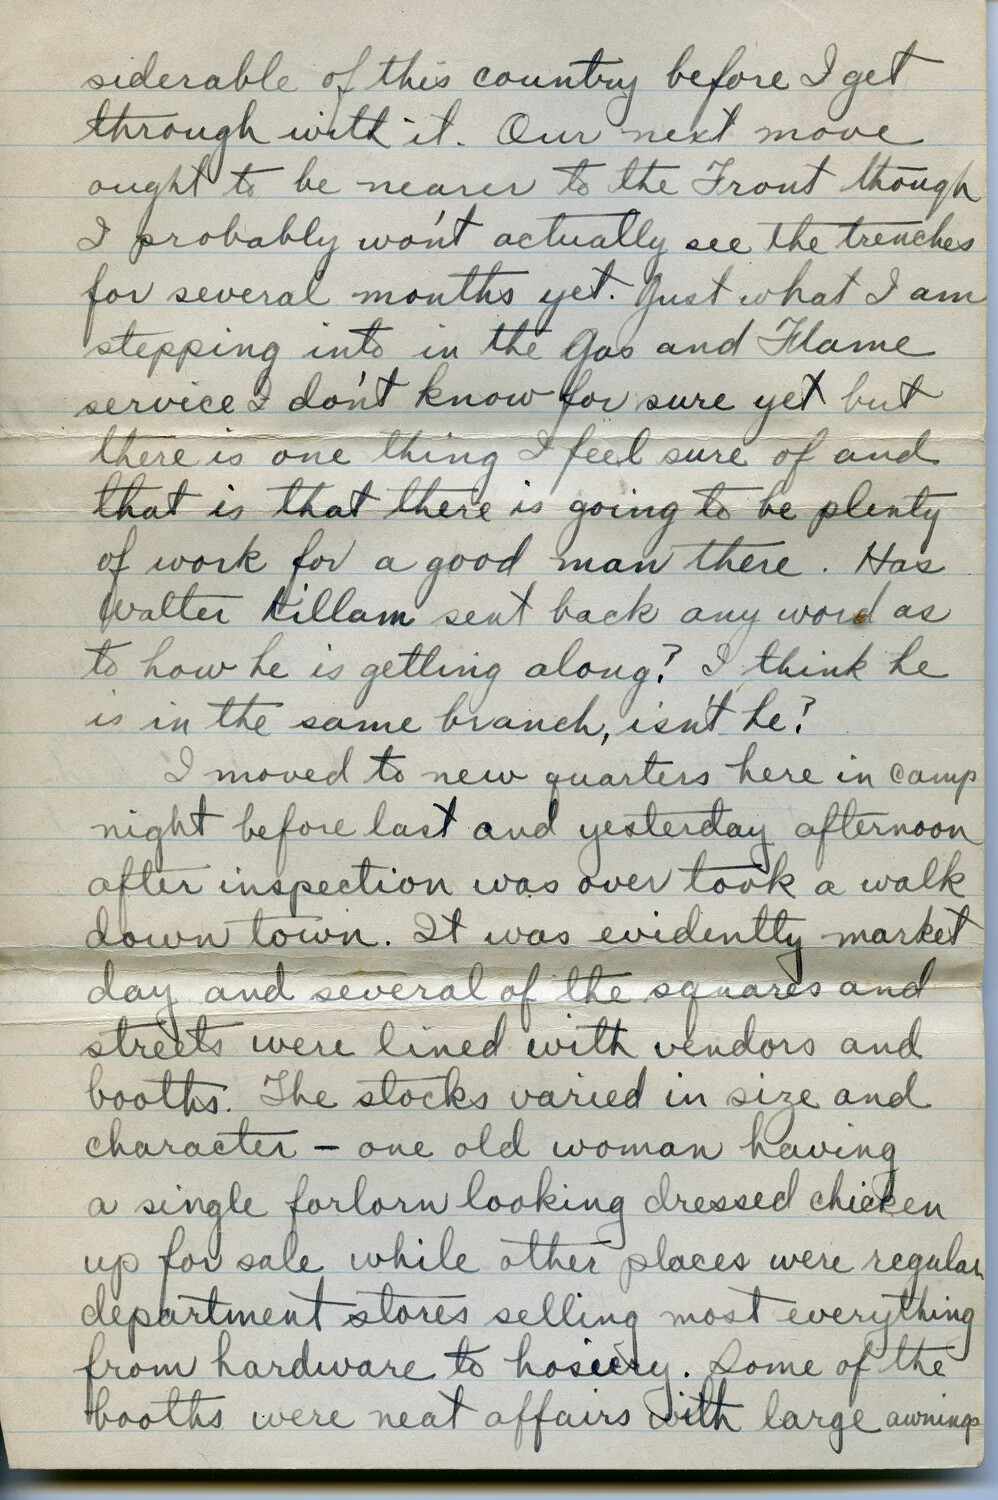 siderable of this country before I get
through with it. Our next move
ought to be nearer to the Front though
I probably won't actually see the trenches
for several months yet. Just what I am
stepping into in the Gas and Flame
service I don't know for sure yet but
there is one thing I feel sure of and
that is that there is going to be plenty
of work for a good man there. Has
Walter Killam sent back any word as
to how he is getting along? I think he
is in the same branch, isn't he?
I moved to new quarters here in camp
night before last and yesterday afternoon
after inspection was over took a walk
down town. It was evidently market
day and several of the squares and
streets were lined with vendors and
booths. The stocks varied in size and
character – one old woman having
a single forlorn looking dressed chicken
up for sale while other places were regular
department stores selling most everything
from hardware to hosiery. Some of the
booths were neat affairs with large awnings